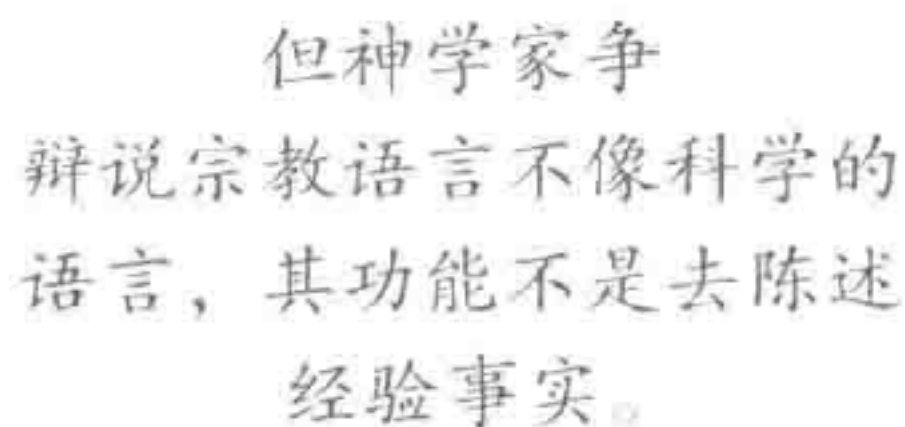 但神学家争
辩说宗教语言不像科学的
语言，其功能不是去陈述
经验事实。